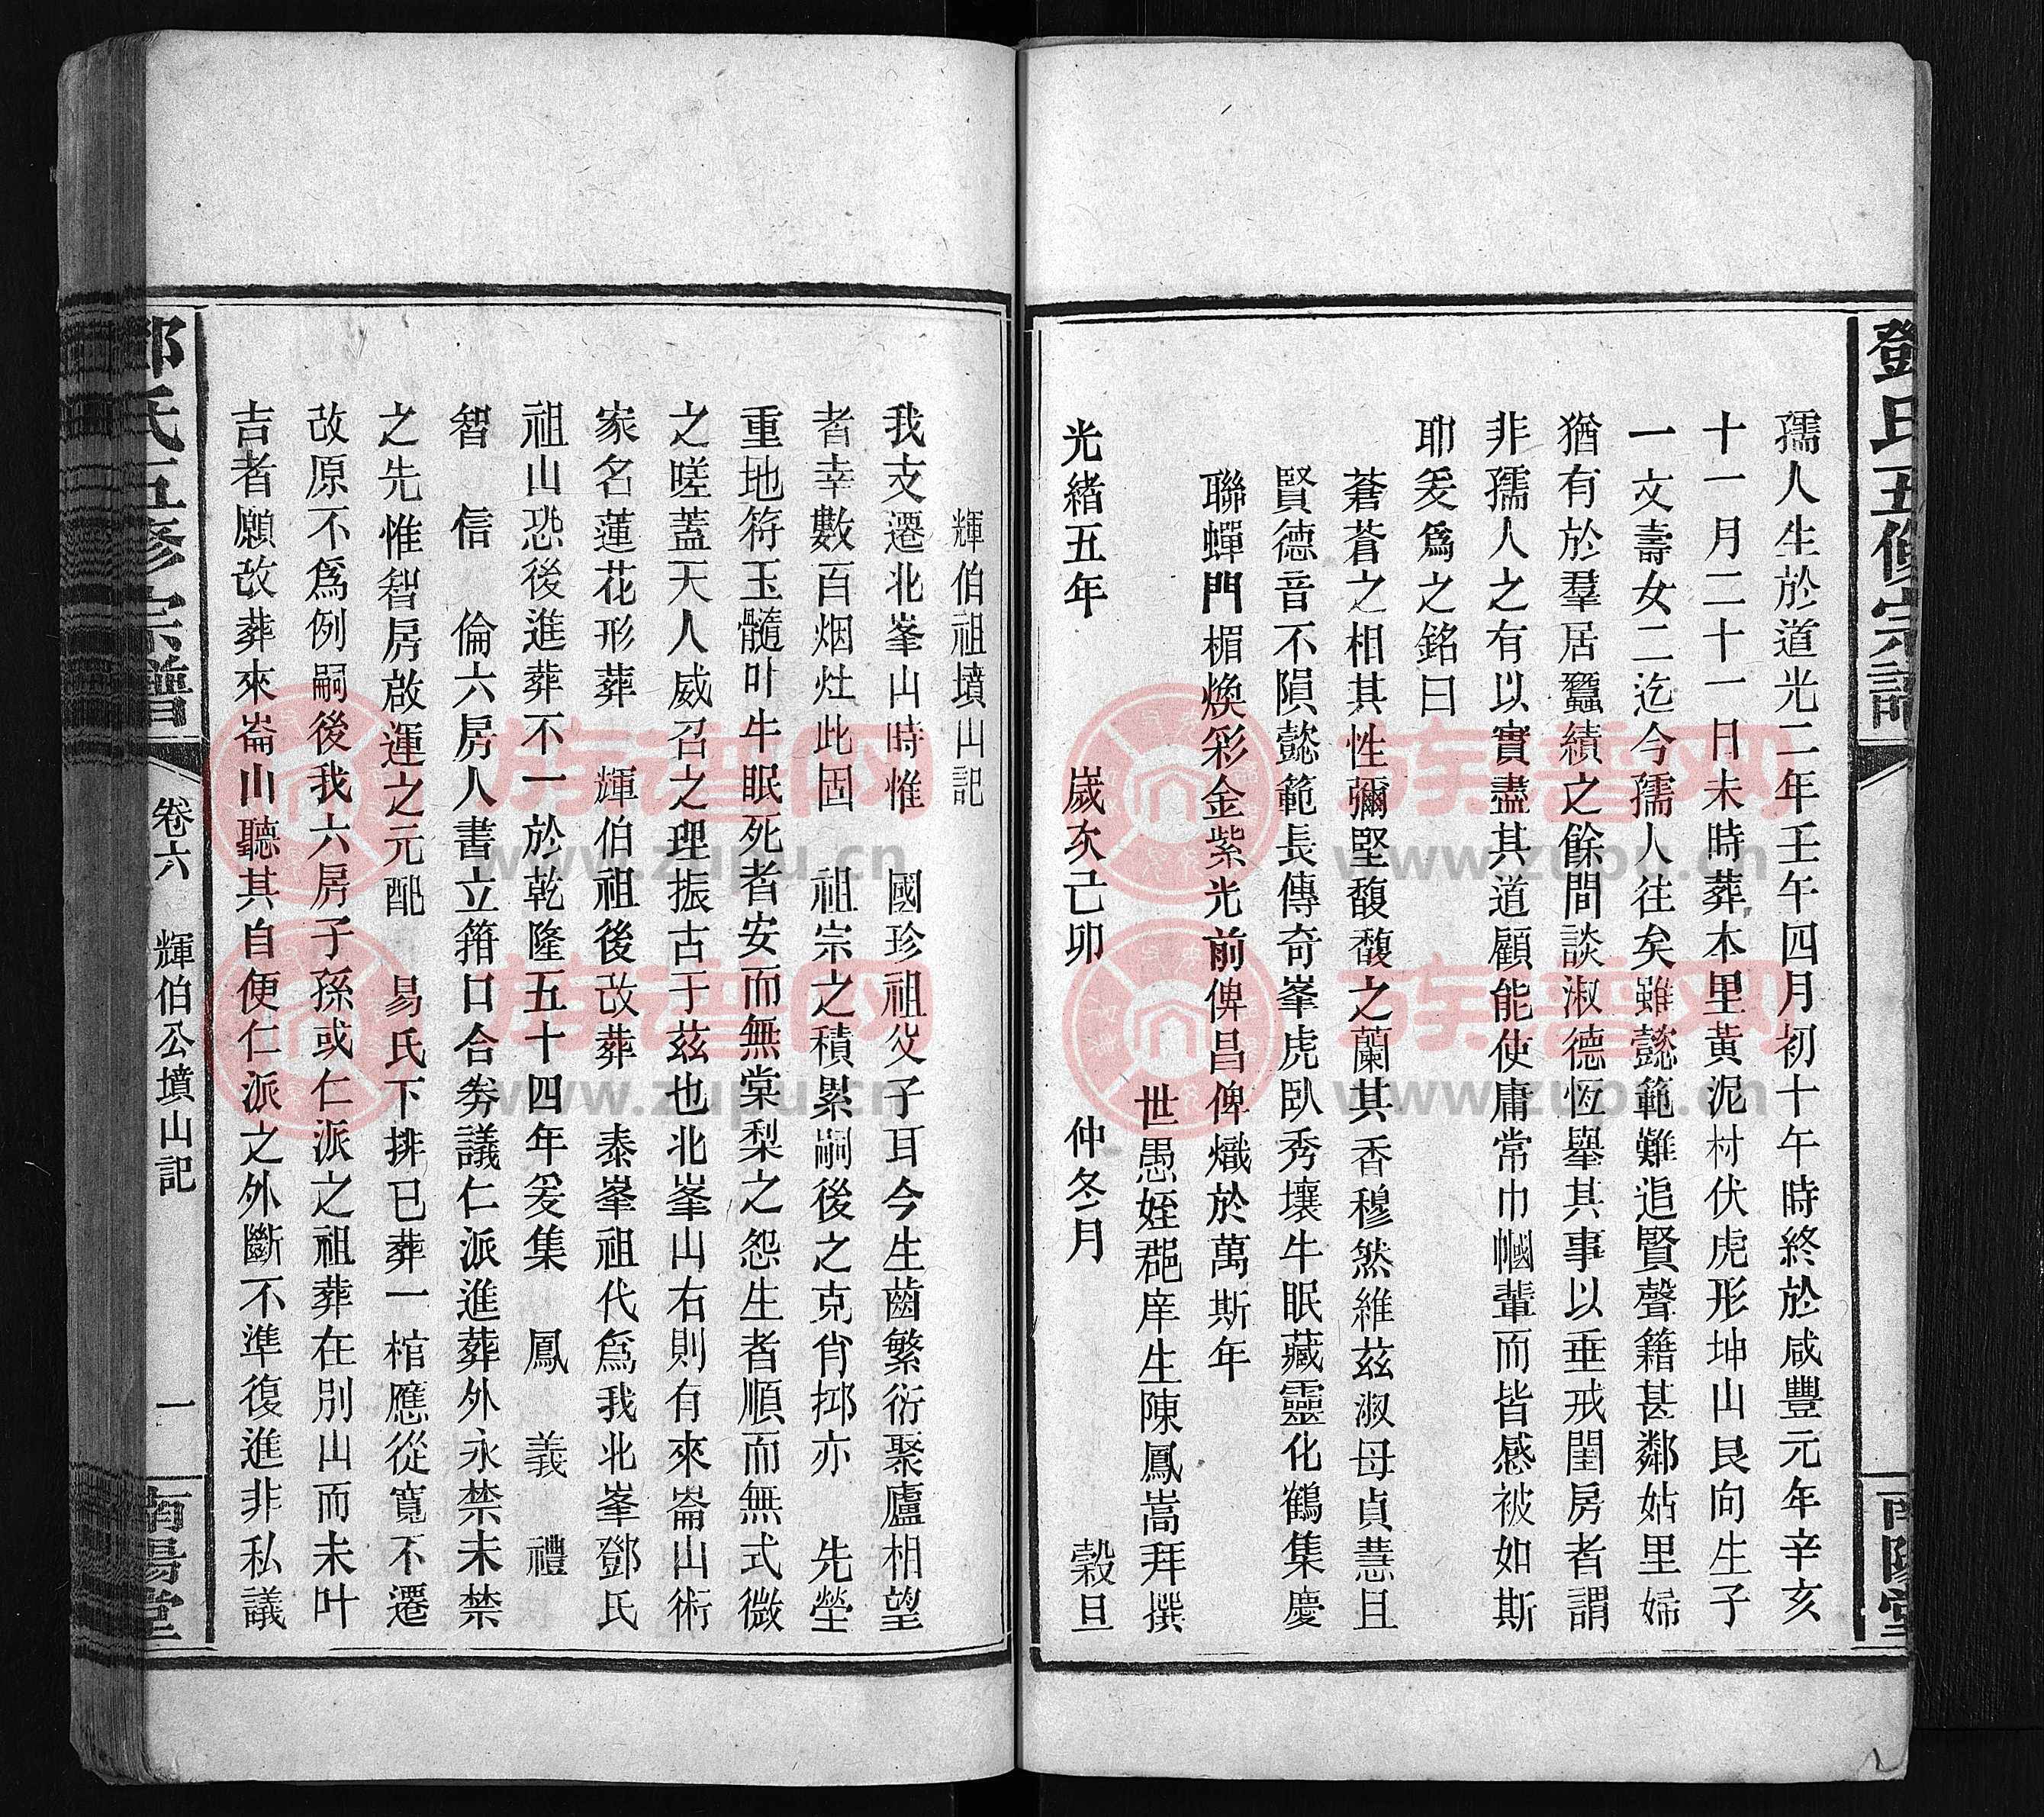 鄧氏五修宗譜
南陽堂
孺人生於道光二年壬午四月初十午時終於咸豐元年辛亥
十一月二十一日未時葬本里黃泥村伏虎形坤山艮向生子
一文壽女二迄今孺人往矣雖懿範難追賢聲籍甚鄰姑里婦
猶有於羣居蠶績之餘間談淑德恆舉其事以垂戒閨房者謂
非孺人之有以實盡其道顧能使庸常巾幗輩而皆感被如斯
耶爰爲之銘曰
蒼蒼之相其性彌堅馥馥之蘭其香穆然維茲淑母貞慧且
賢德音不隕懿範長傳奇峯虎臥秀壤牛眠藏靈化鶴集慶
聯蟬門楣煥彩金紫光前俾昌俾熾於萬斯年
世愚姪郡庠生陳鳳嵩拜撰
光緒五年 歲次己卯 仲冬月 穀旦
輝伯祖墳山記
我支遷北峯山時惟 國珍祖父子耳今生齒繁衍聚廬相望
者幸數百烟灶此固 祖宗之積累嗣後之克肖抑亦 先塋
重地符玉髓叶牛眠死者安而無棠梨之怨生者順而無式微
之嗟蓋天人威召之理振古于茲也北峯山右則有來崙山術
家名蓮花形葬 輝伯祖後改葬 泰峯祖代爲我北峯鄧氏
祖山恐後進葬不一於乾隆五十四年爰集 鳳 義 禮
智 信 倫六房人書立箝口合劵議仁派進葬外永禁未禁
之先惟智房啟運之元配 易氏下排已葬一棺應從寬不遷
故原不爲例嗣後我六房子孫或仁派之祖葬在別山而未叶
吉者願改葬來崙山聽其自便仁派之外斷不準復進非私議
鄧氏五修宗譜
卷六 輝伯公墳山記
一
南陽堂
族譜网
www.zupu.cn
族譜网
www.zupu.cn
族譜网
www.zupu.cn
族譜网
www.zupu.cn